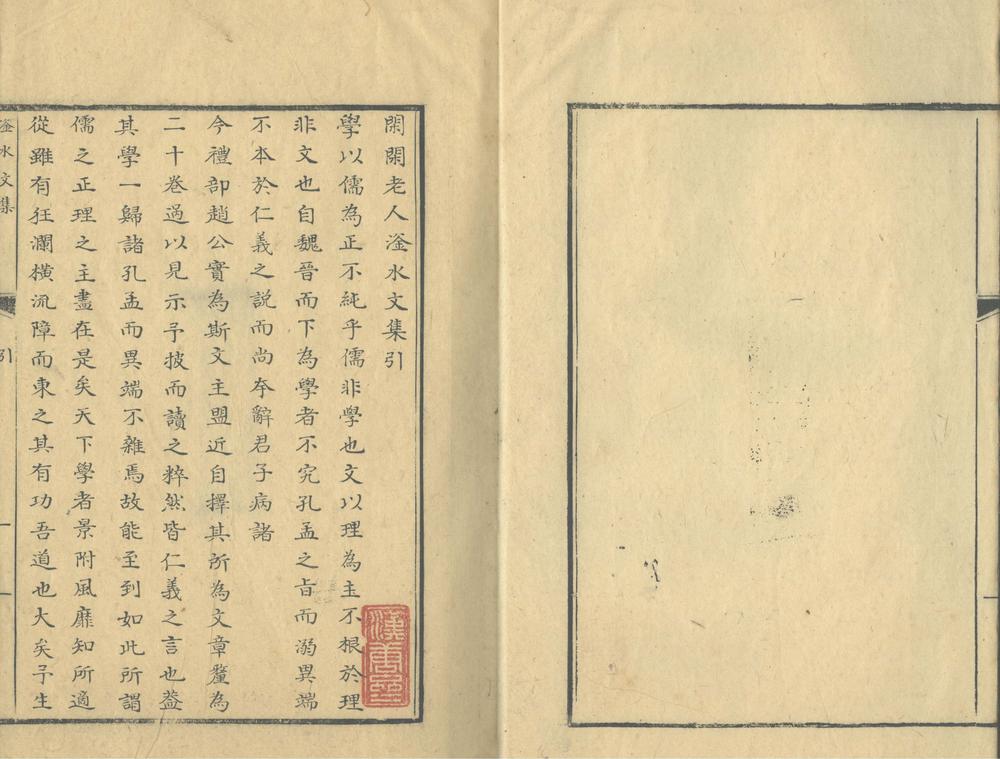 閑閑老人滏水文集引
學以儒為正不純乎儒非學也文以理為主不根於理
非文也自魏晉而下為學者不究孔孟之旨而溺異端
不本於仁義之説而尚夲辭君子病諸
今禮部趙公實為斯文主盟近自擇其所為文章釐為
二十卷過以見示予披而讀之粹然皆仁義之言也葢
其學一歸諸孔孟而異端不雜焉故能至到如此所謂
儒之正理之主盡在是矣天下學者景附風靡知所適
從雖有狂瀾橫流障而東之其有功吾道也大矣予生
滏水文集
引